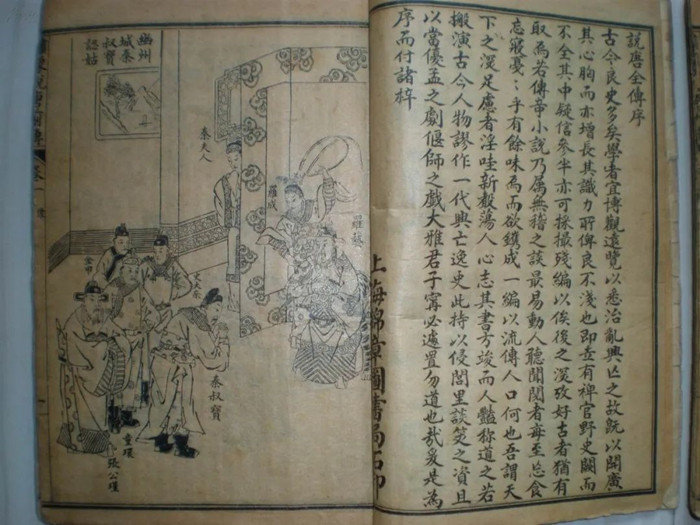 說唐全傳序
古今良史多矣學者宜博觀遠覽以悉治亂興亡之故既以開廣
其心胸而亦增長其識力所俾良不淺也即吾有裨官野史闕而
不全其中疑信參半亦可採撮殘編以俟後之深攷好古者猶有
取焉若傳奇小說乃屬無稽之談最易動人聽聞閱者每至忘食
忘寢憂憂乎有餘味焉而欲鐫成一編以流傳人口何也吾謂天
下之深足慮者淫哇新聲蕩人心志其書方竣而人豔稱道之若
搬演古今人物謬作一代興亡逸史此特以侵閭里談笑之資且
以當優孟之劇偃師之戲大雅君子寗必遽置勿道也哉爰是為
序而付諸梓
上海錦章圖書局石印
幽州
城秦
叔寶
認姑
秦夫人
羅成
羅藝
金甲
尤夫秦
秦叔寶
童環
張公瑾